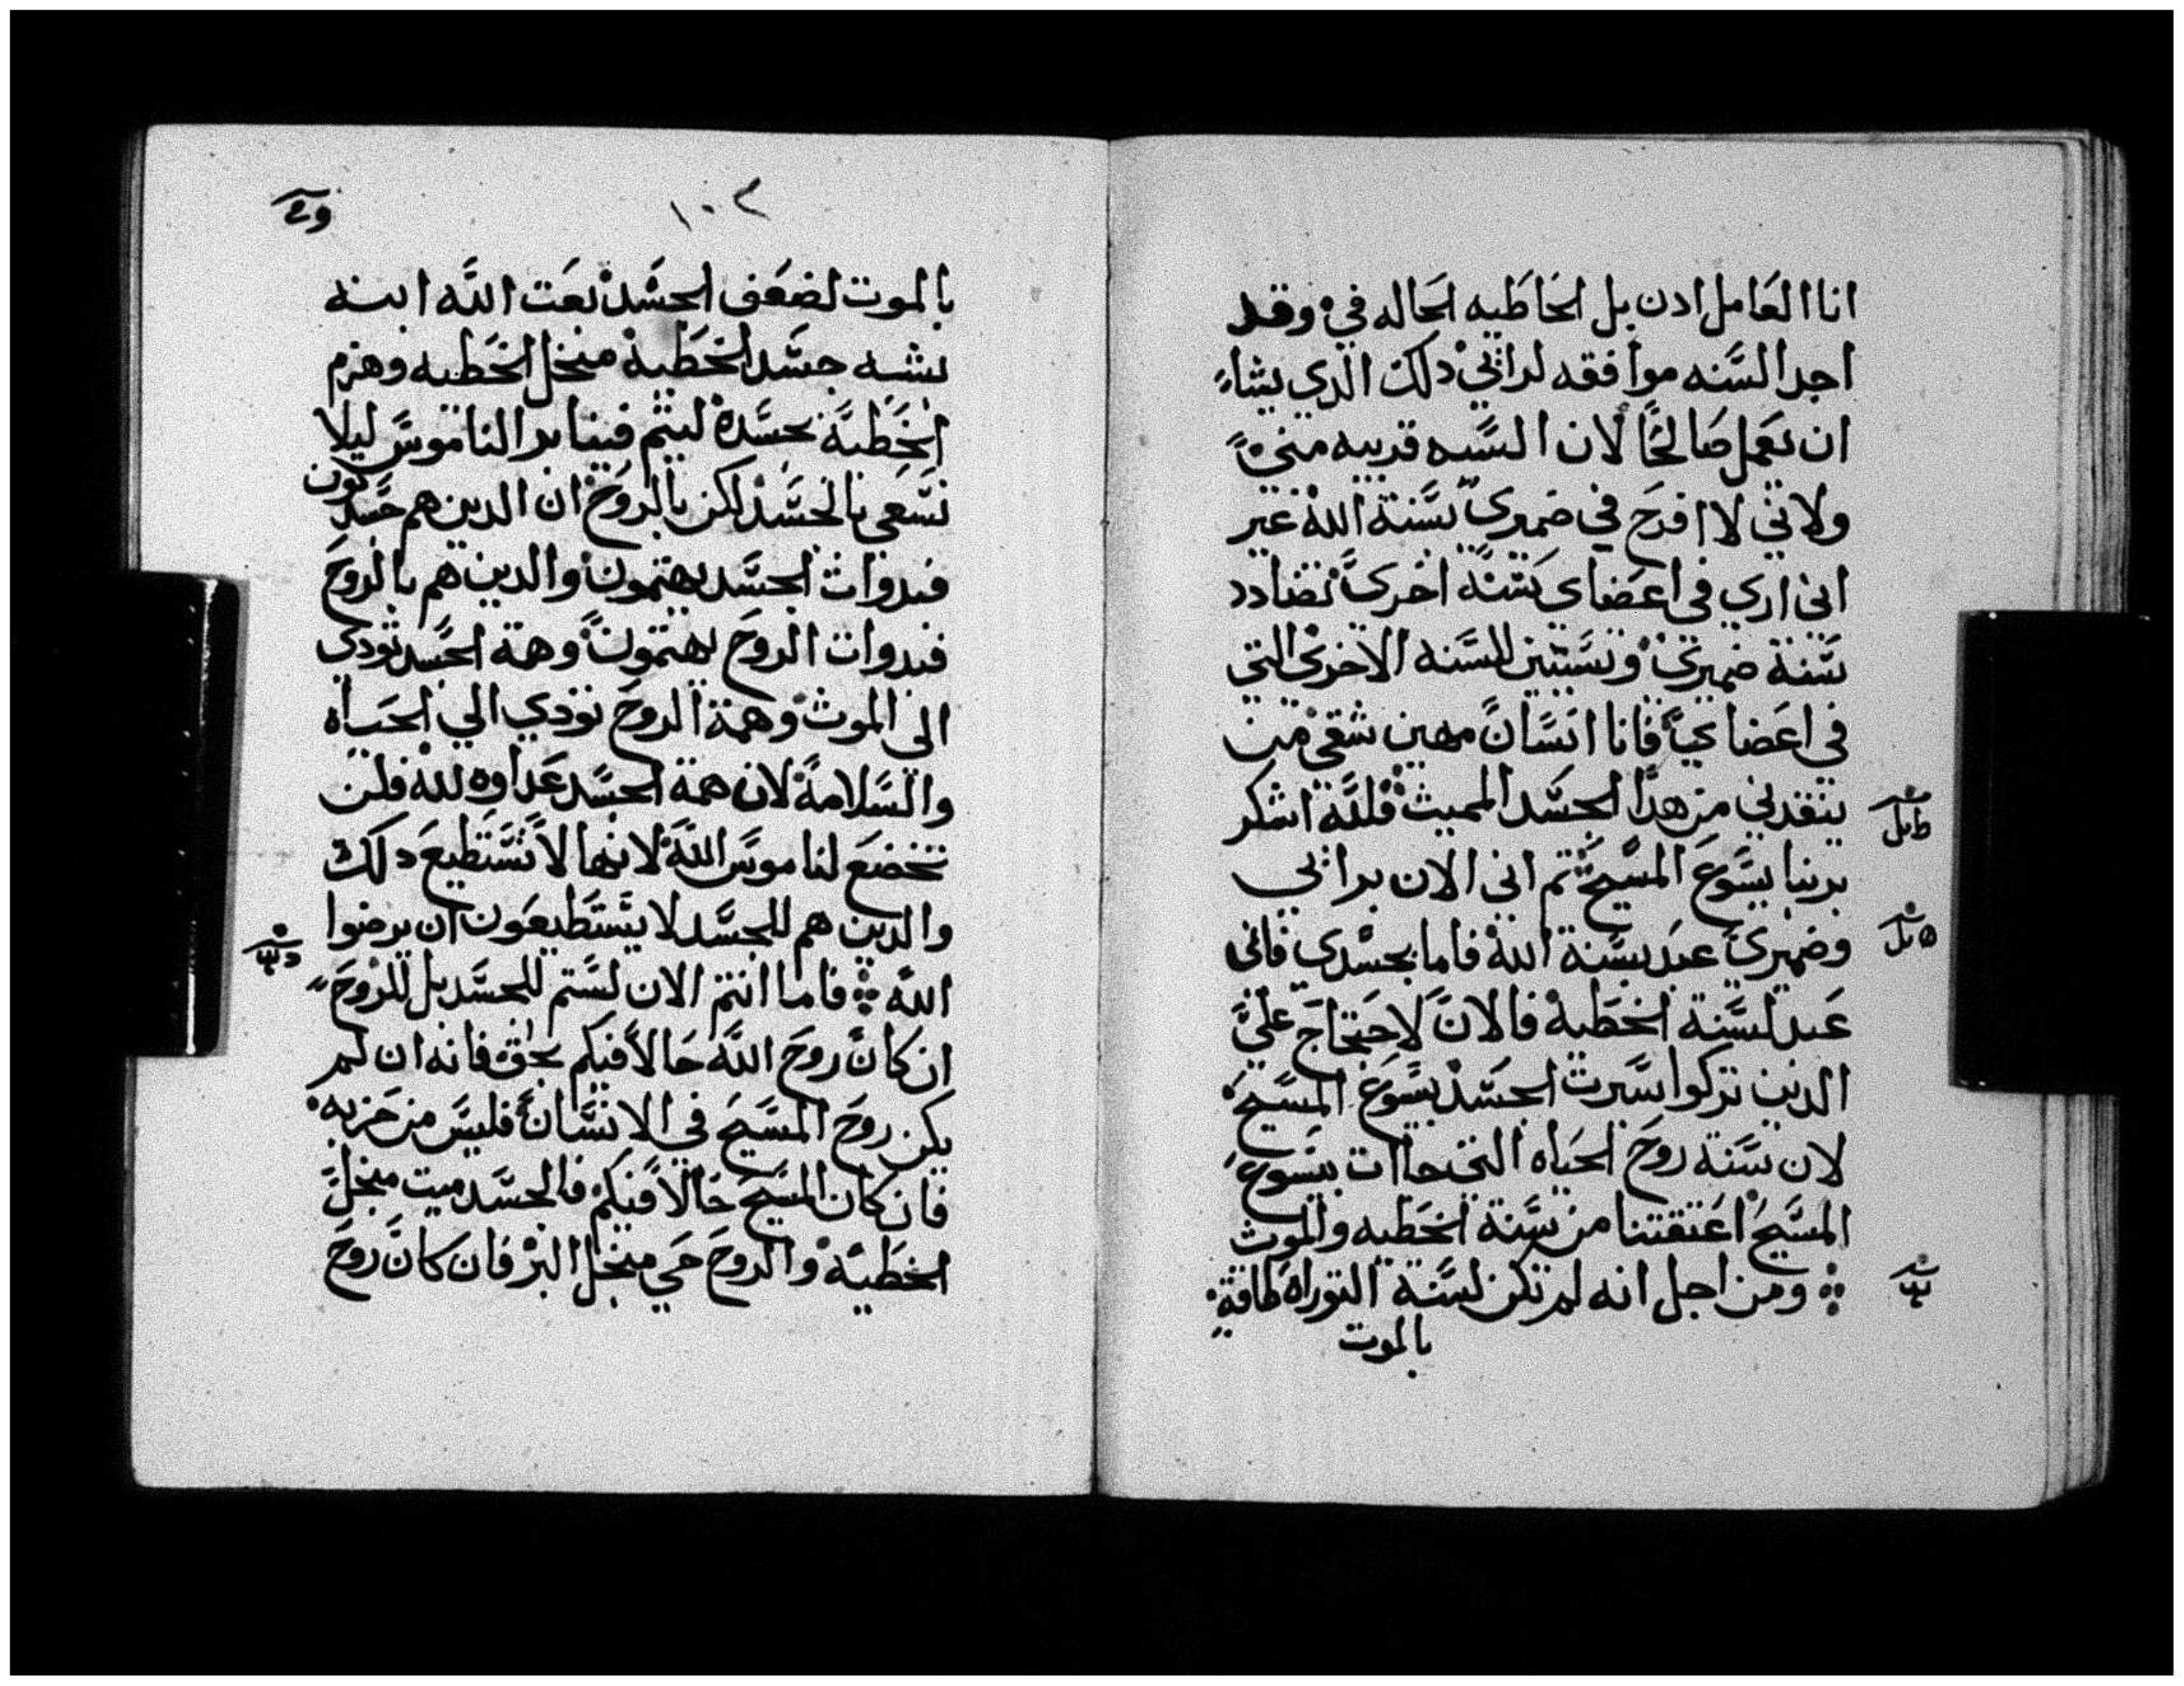 انا العَامل ادن بل الخاطَيه الحَاله فيَ وقد
اجد السَّنه موافقه لداتي دلك الدي يشاء
ان يعَمل صَالحًا لان السَّيه قريبه مني
ولاني لاافرح في ضميري بسَّنة الله غير
اني اري في اعضاي بسَّنَّة اخري تضادد
سَّنة ضميري وتسَّتبين للسَّنه الاخري التي
في اعَضاي فانا انسَّان مهين شقي من
ينقدني من هدا الجسَّد المميت فلله اشكر
بربنا يسَّوعَ المسَّيح تم اني الان بداتي
وضميري عبد بسَّنة الله فاما بجسَّدي فاني
عَبد لسَّنة الخطَية فالان لاحتجاج علي
الدين تركوا سَّيرت الجسَّد بيسَّوعَ المسَّيح
لان سَّنة روح الحيَاه التي جاات بيسَّوع
المسَّيح اعَتقتنا من سَّنة الخطَيه والموت
⁘ ومن اجل انه لم تكن لسَّنة التوراه طاقة
بالموت
١٠٢
بالموت لضعَف الجسَّد بعَت الله ابنه
بشبه جسَّد الخطَية منجل الخطَيه وهزم
الخطَية بجسَّدة ليتم فينا بر الناموسَّ ليلا
نسَّعي بالجسَّد لكن بالروح ان الدين هم جسَّديكون
فبدوات الجسَّد يهتمون والدين هم بالروح
فبدوات الروح يهتمون وهمة الجسَّد تودي
الى الموت وهمة الروح تودي الي الحيَاه
والسَّلامة لان همة الجسَّد عَداوه لله فلن
تخضعَ لناموسَّ الله لانها لاتسَّتطيعَ دلك
والدين هم للجسَّد لا يسَّتطيعَون ان يرضوا
الله ⁘ فاما انتم الان لسَّتم للجسَّد بل للروح
ان كان روح الله حَالاً فيكم بحق فانه ان لم
يكن روح المسَّيح في الانسَّان فليسَّ من حَزبه
فان كان المسَّيح حَالاً فيكم فالجسَّد ميت منجل
الخطَية والروح حَي منجل البر فان كان روح